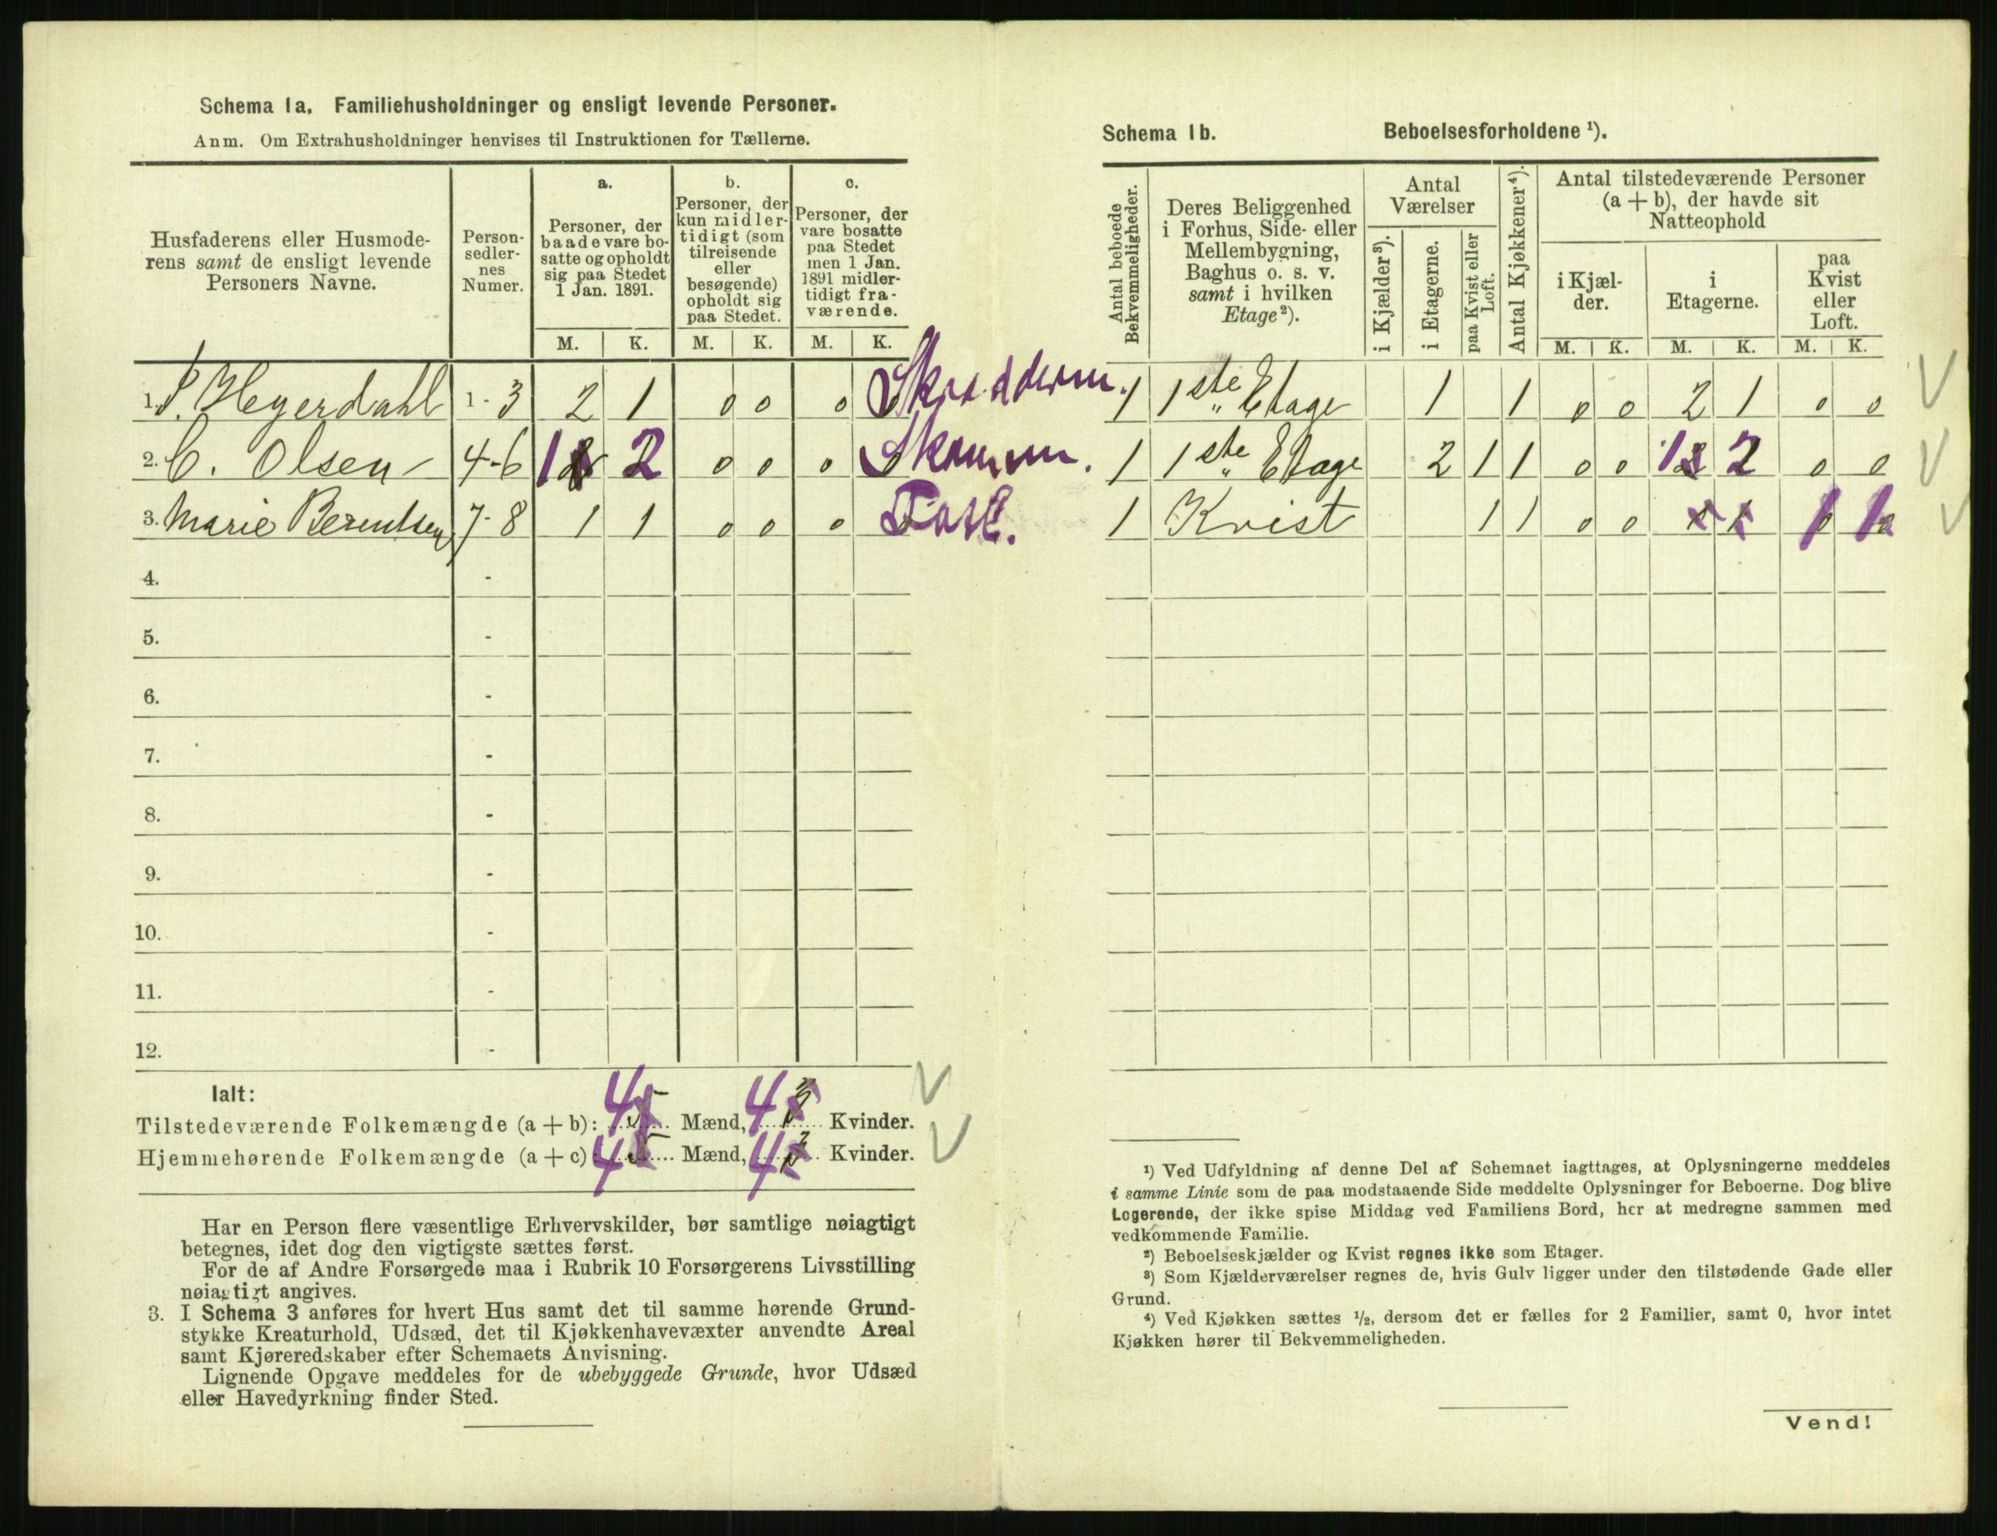 Schema 1a. Familiehusholdninger og ensligt levende Personer.
Anm. Om Extrahusholdninger henvises til Instruktionen for Tællerne.
Husfaderens eller Husmode-
rens samt de ensligt levende
Personers Navne.
Person-
sedler-
nes
Numer.
a.
Personer, der
baade vare bo-
satte og opholdt
sig paa Stedet
1 Jan. 1891.
b.
Personer, der
kun midler-
tidigt (som
tilreisende
eller
besøgende)
opholdt sig
paa Stedet.
c.
Personer, der
vare bosatte
paa Stedet
men 1 Jan.
1891 midler-
tidigt fra-
værende.
M. K. M. K. M. K.
1. P. Heyerdahl 1-3 2 1 0 0 0 0 Skrædderm.
2. C. Olsen 4-6 1 2 0 0 0 0 Skomm.
3. Marie Berentsen 7-8 1 1 0 0 0 0
4. -
5. -
6. -
7. -
8. -
9. -
10. -
11. -
12. -
Ialt:
Tilstedeværende Folkemængde (a + b): 4 5 Mænd, 4 3 Kvinder.
Hjemmehørende Folkemængde (a + c): 4 5 Mænd, 4 3 Kvinder.
Har en Person flere væsentlige Erhvervskilder, bør samtlige nøiagtigt
betegnes, idet dog den vigtigste sættes først.
For de af Andre Forsørgede maa i Rubrik 10 Forsørgerens Livsstilling
nøiagtigt angives.
3. I Schema 3 anføres for hvert Hus samt det til samme hørende Grund-
stykke Kreaturhold, Udsæd, det til Kjøkkenhavevæxter anvendte Areal
samt Kjøreredskaber efter Schemaets Anvisning.
Lignende Opgave meddeles for de ubebyggede Grunde, hvor Udsæd
eller Havedyrkning finder Sted.
Schema 1b. Beboelsesforholdene ¹).
Antal beboede
Bekvemmeligheder.
Deres Beliggenhed
i Forhus, Side- eller
Mellembygning,
Baghus o. s. v.
samt i hvilken
Etage²).
Antal
Værelser
i Kjælder³).
i Etagerne.
paa Kvist eller
Loft.
Antal Kjøkkener⁴).
Antal tilstedeværende Personer
(a + b), der havde sit
Natteophold
i Kjæl-
der.
i
Etagerne.
paa
Kvist
eller
Loft.
M. K. M. K. M. K.
1 1ste Etage 1 1 0 0 2 1 0 0
1 1ste Etage 2 1 1 0 0 1 2 0 0
1 Kvist 1 1 0 0 1 1 1 1
¹) Ved Udfyldning af denne Del af Schemaet iagttages, at Oplysningerne meddeles
i samme Linie som de paa modstaaende Side meddelte Oplysninger for Beboerne. Dog blive
Logerende, der ikke spise Middag ved Familiens Bord, her at medregne sammen med
vedkommende Familie.
²) Beboelseskjælder og Kvist regnes ikke som Etager.
³) Som Kjælderværelser regnes de, hvis Gulv ligger under den tilstødende Gade eller
Grund.
⁴) Ved Kjøkken sættes ½, dersom det er fælles for 2 Familier, samt 0, hvor intet
Kjøkken hører til Bekvemmeligheden.
Vend!